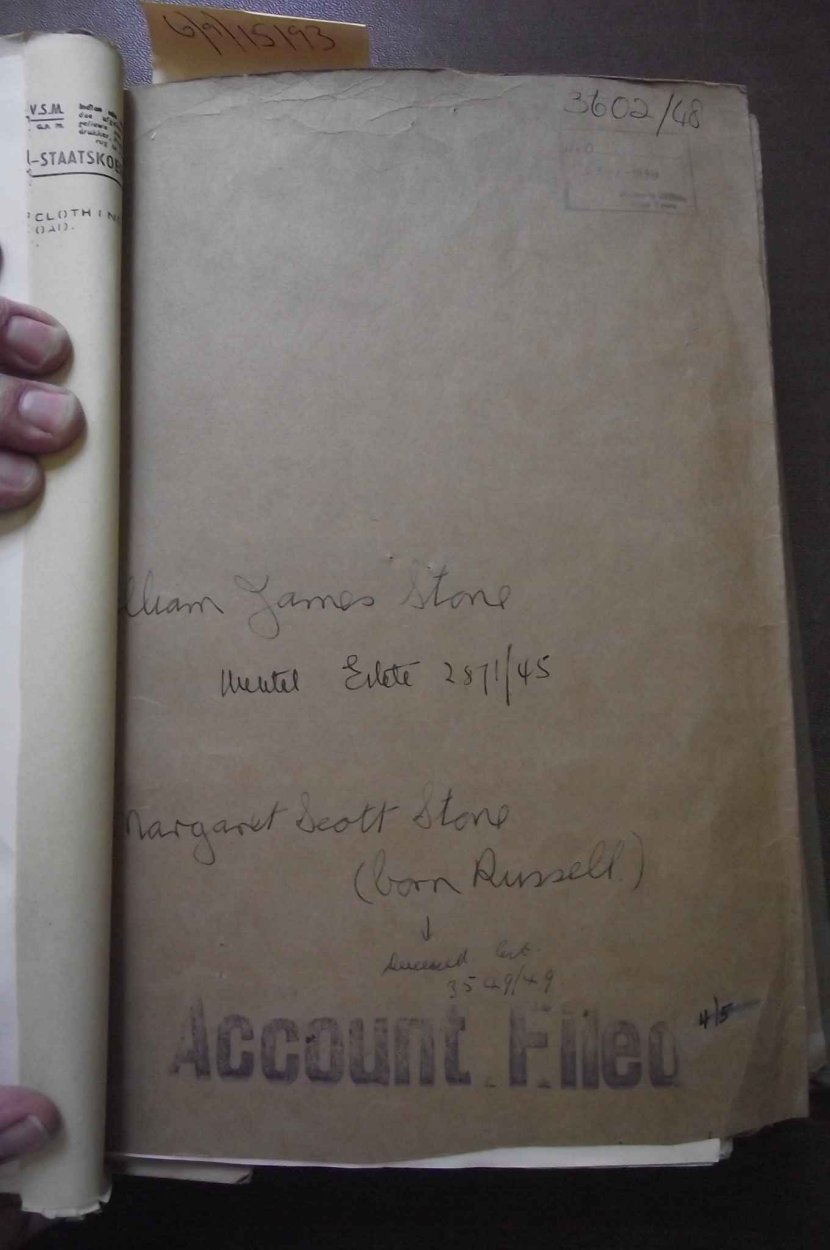 6/9/15/93
3602/48
V.S.M.
G.P.-S.
-STAATSKOE
CLOTHIN
OAD.
lliam James Stone
Mental Estate 2871/45
Margaret Scott Stone
(born Russell)
↓
Deceased Est.
3549/49
Account Filed
4/5